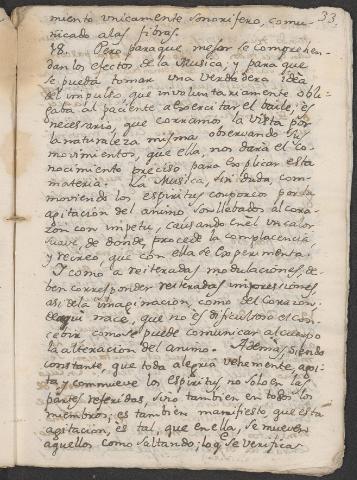 33.
miento unicamente sonorifero, comu-
nicado a las fibras.
18. Pero para que mejor se comprehen-
dan los efectos de la Musica, y para que
se pueda tomar una verdadera idea
del impulso, que involuntariamente obli-
gaba al paciente a exercitar el baile, es
necesario, que corramos la vista por
la naturaleza misma observando sus
movimientos, que ella, nos dará el co-
nocimiento preciso para explicar esta
materia. La Musica, sin duda, com-
moviendo los espiritus corporeos por la
agitacion del animo son llebados al cora-
zon con impetu, causando en el un calor
suave, de donde procede la complacencia,
y recreo, que con ella se experimenta.
Y como a reiteradas modulaciones, de-
ben corresponder reiteradas impresiones,
asi de la imaginacion, como del Corazon,
de aqui nace, que no es dificultoso el con-
cebir como se puede comunicar al cuerpo
la alteracion del animo. Ademas, siendo
constante, que toda alegria vehemente, agi-
ta, y commueve los espiritus no solo en las
partes referidas, sino tambien en todos los
miembros; es tambien manifiesto, que esta
agitacion, es tal, que en ella, se mueven
aquellos como saltando; lo q.e se verifica